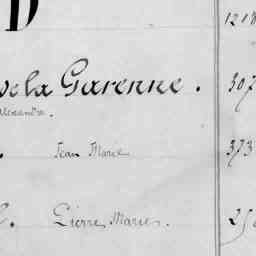 D 1218
de la Garenne. 307
Alexandre.
Jean Marie 373
Pierre Marie.